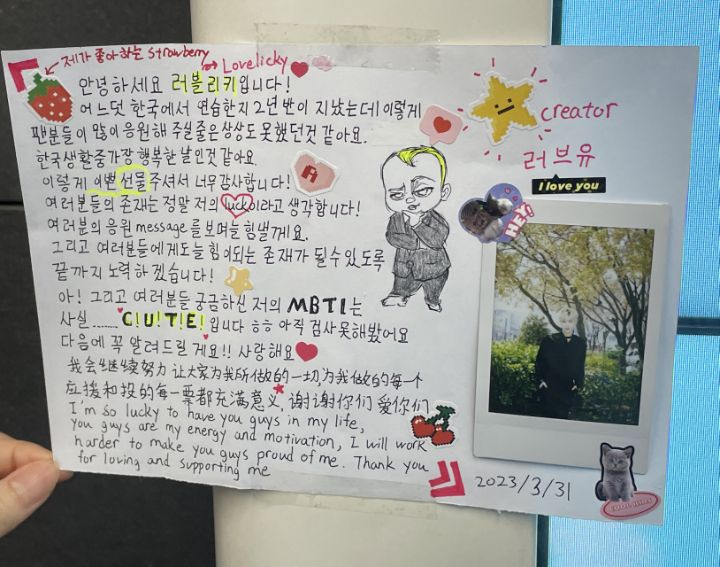 제가 좋아하는 strawberry
Lovelicky
안녕하세요 러블리키입니다!
어느덧 한국에서 연습한지 2년 반이 지났는데 이렇게
팬분들이 많이 응원해 주실 줄은 상상도 못했던것 같아요.
한국생활중 가장 행복한 날인것 같아요.
이렇게 이쁜 선물 주셔서 너무 감사합니다!
여러분들의 존재는 정말 저의 luck이라고 생각합니다!
여러분의 응원 message를 보며 늘 힘낼게요.
그리고 여러분들에게도 늘 힘이되는 존재가 될 수 있도록
끝까지 노력하겠습니다!
아! 그리고 여러분들 궁금하신 저의 MBTI는
사실 ...... C!U!T!E! 입니다 ㅎㅎ 아직 검사 못해봤어요
다음에 꼭 알려드릴 게요!! 사랑해요
我会继续努力 让大家为我所做的一切,为我做的每一个
应援和投的每一票都充满意义,谢谢你们 爱你们
I'm so lucky to have you guys in my life,
you guys are my energy and motivation, I will work
harder to make you guys proud of me. Thank you
for loving and supporting me
A
creator
러브유
I love you
HEY!
2023/3/31